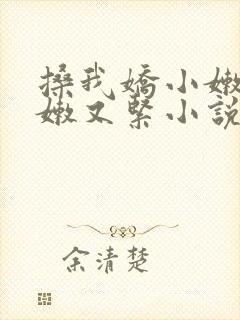 搡我嬌小嫩
嫩又緊小說
余清楚